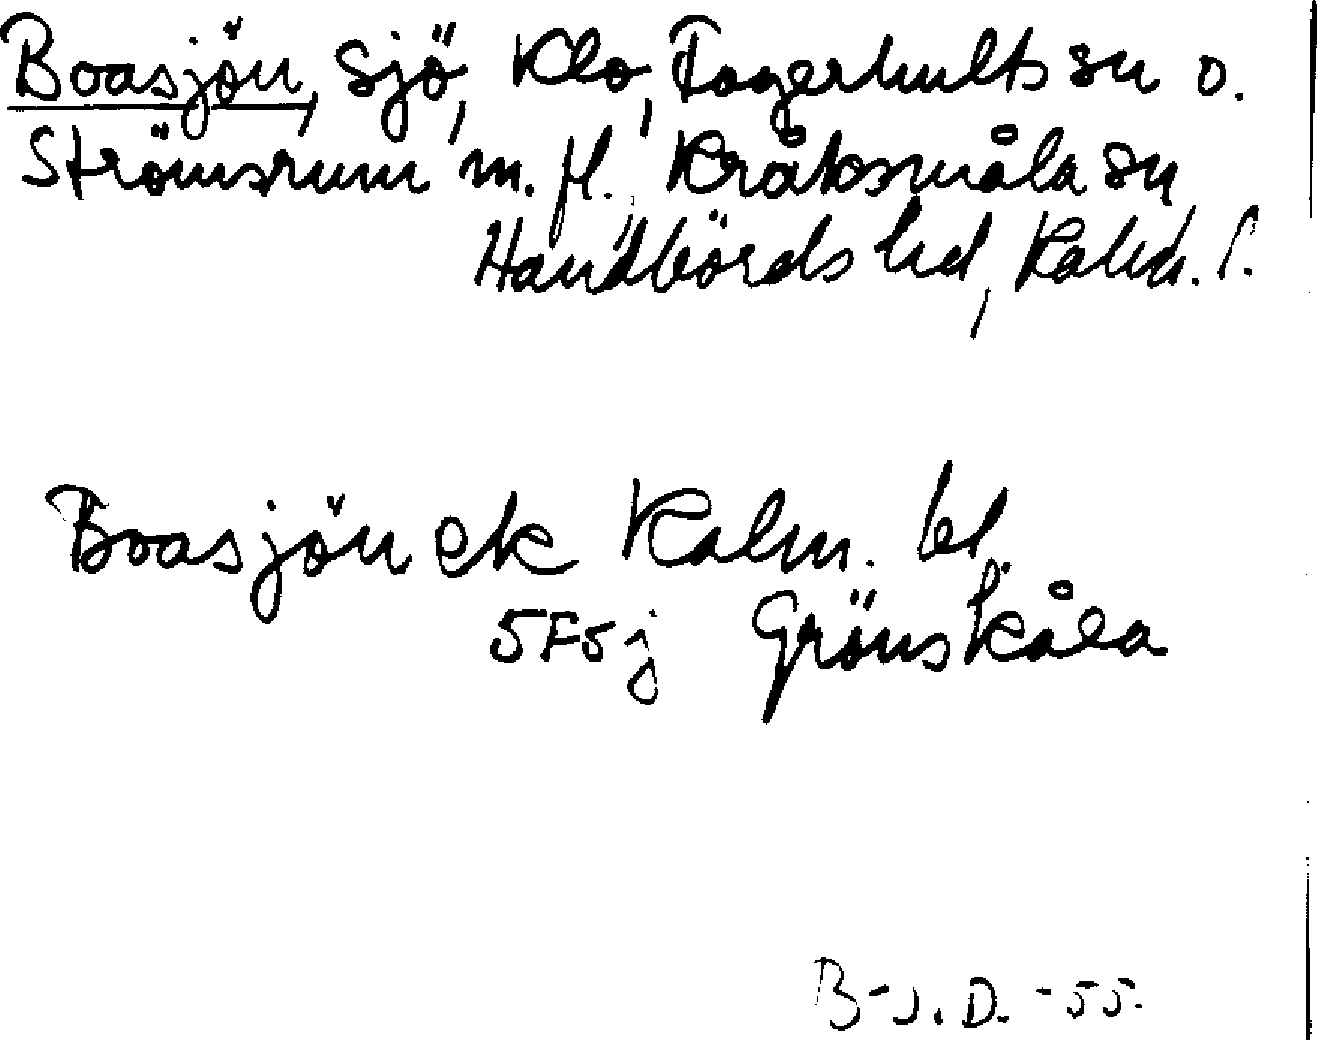 Boasjön, sjö, Klo, Fagerhults sn o.
Strömsrum m. fl. Kråksmåla sn
Handbörds hd, Kalm. l.
Boasjön ek Kalm. bl.
5F5j Grönskåla
B-J. D. -55.